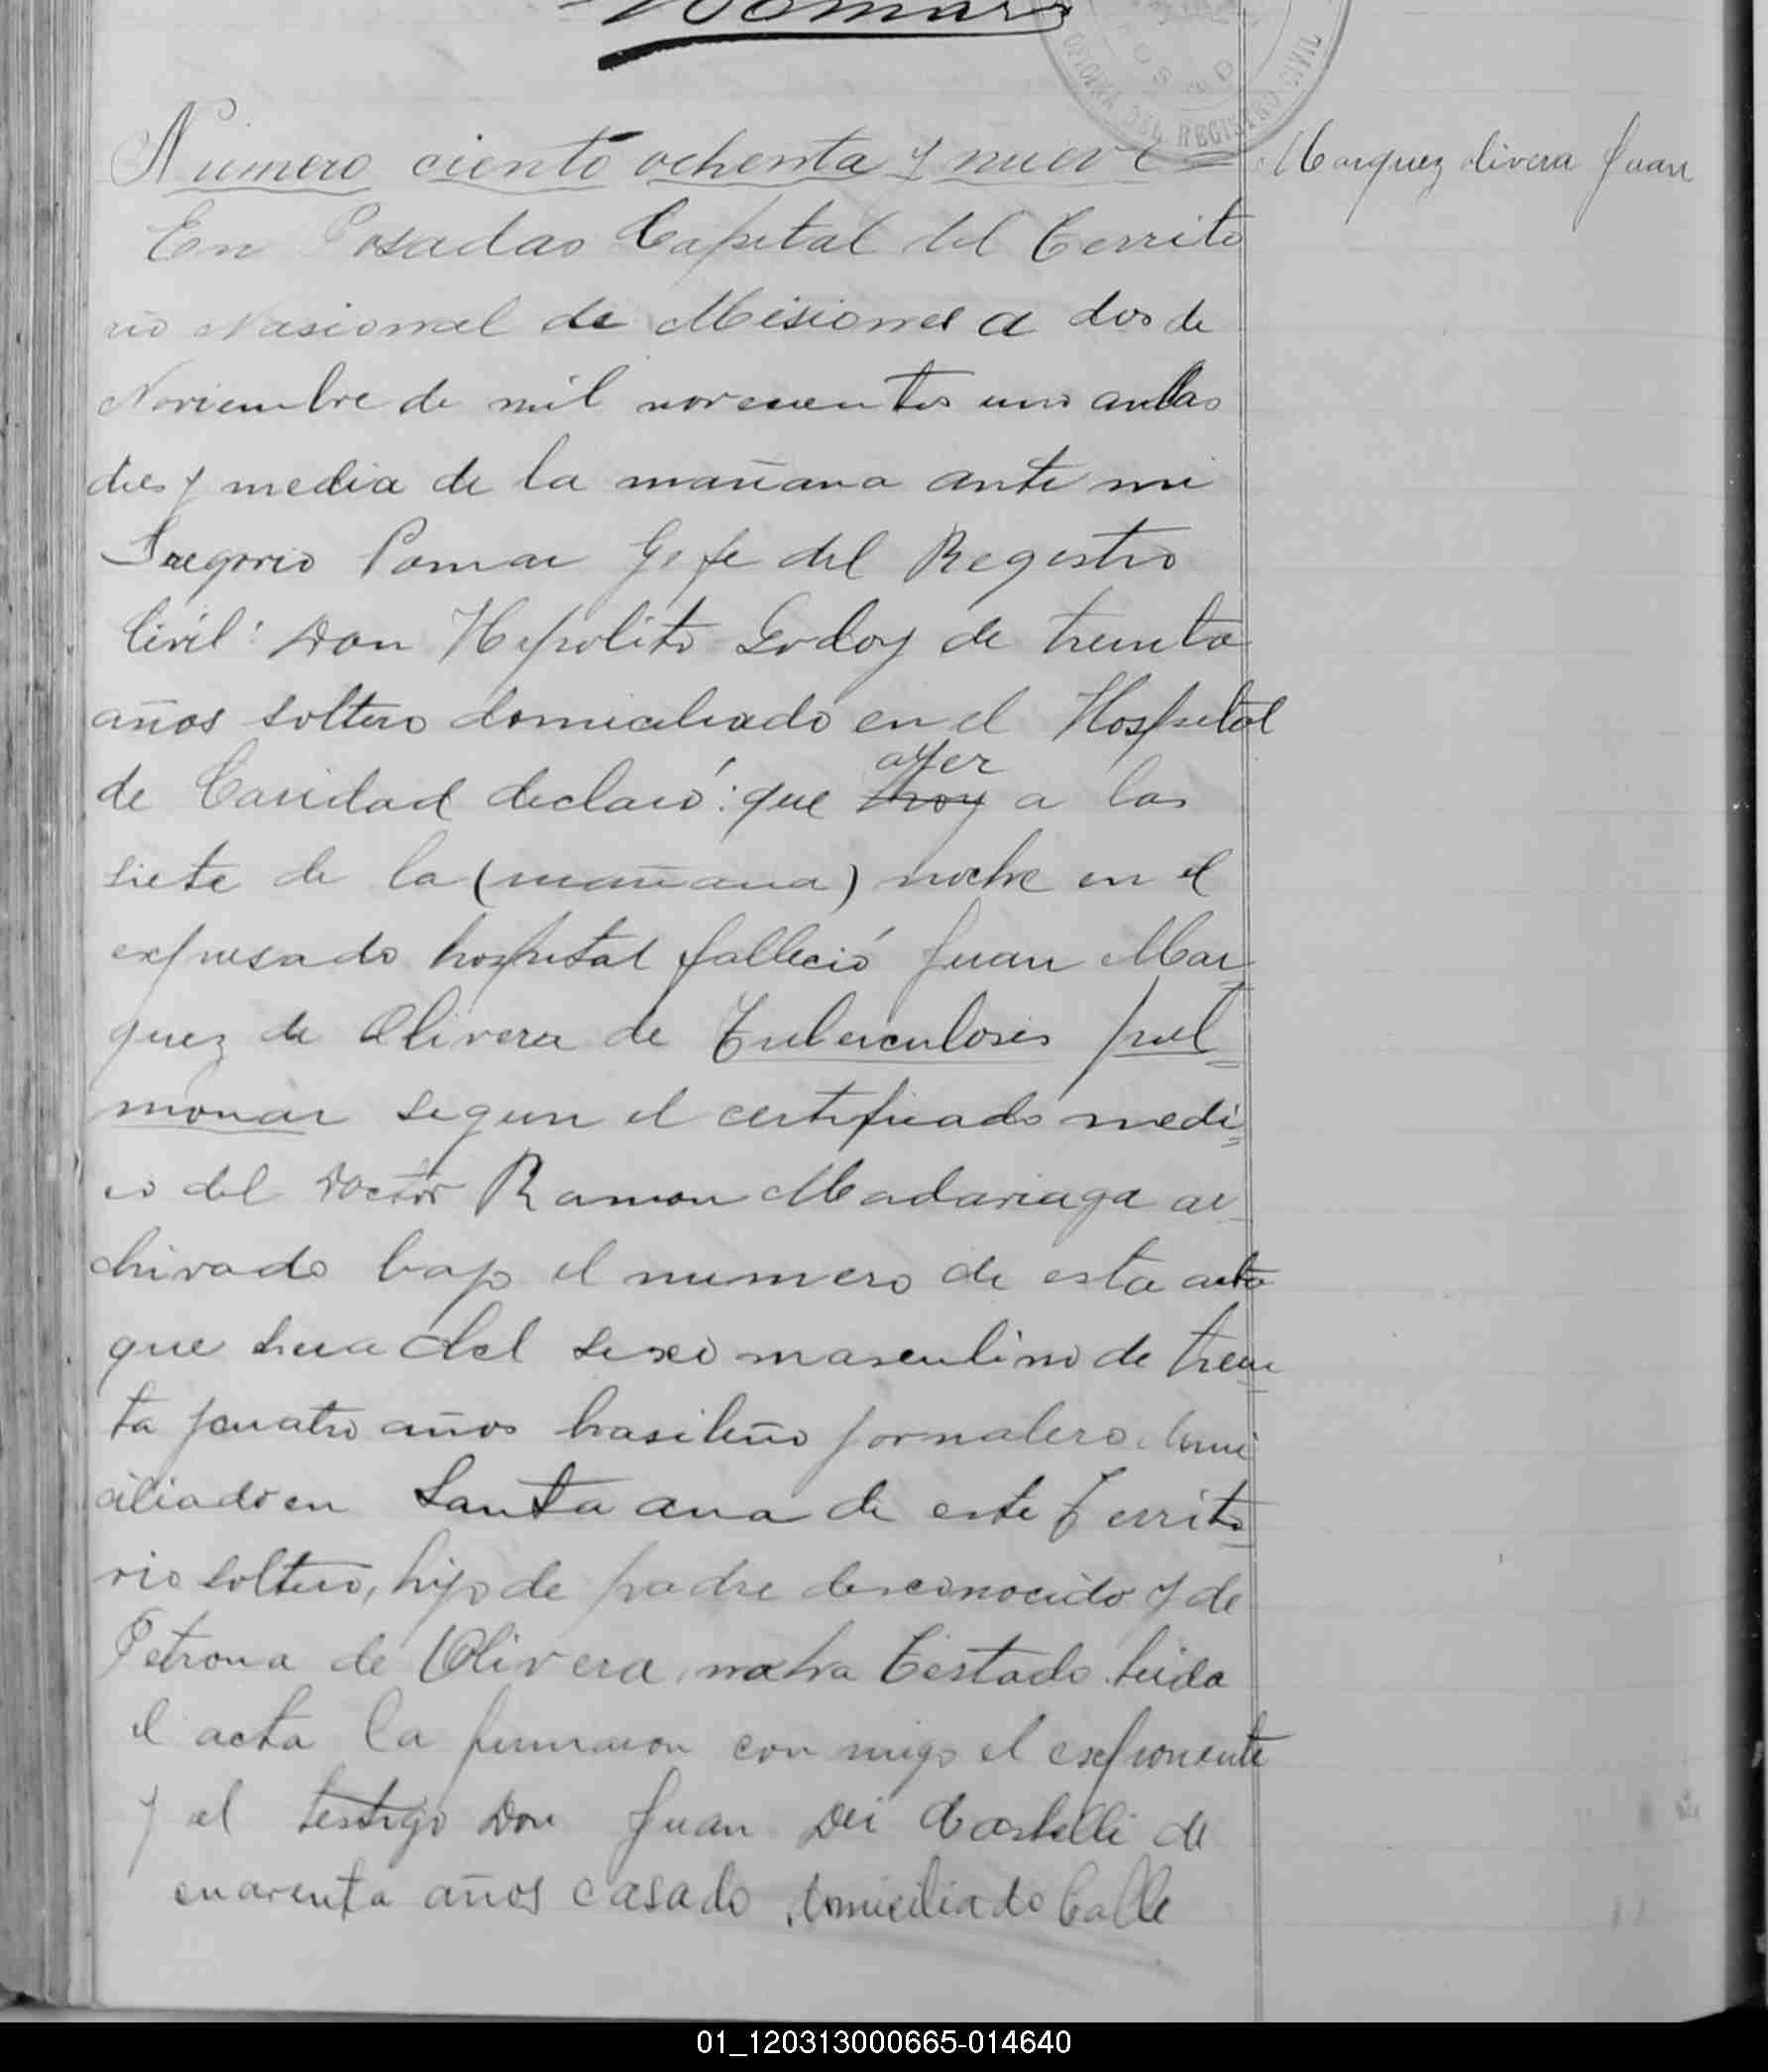 Pomar
OFICINA DEL REGISTRO CIVIL
Numero ciento ochenta y nueve = Marquez olivera Juan
En Posadas Capital del Territo
rio Nasional de Misiones a dos de
Noviembre de mil novecientos uno a las
dies y media de la mañana ante mi
Gregorio Pomar Gefe del Registro
Civil: Don Hipolito Godoy de treinta
años soltero domiciliado en el Hospital
ayer
de Caridad declaró: que hoy a las
siete de la (mañana) noche en el
expresado hospital falleció Juan Mar
quez de Olivera de Tuberculosis pul
monar segun el certificado medi
co del Doctor Ramon Madariaga ar
chivado bajo el numero de esta acta
que era del sexo masculino de trein
ta y cuatro años brasileño jornalero domi
ciliado en Santa ana de este Territo
rio soltero, hijo de padre desconocido y de
Petrona de Olivera Testado. Leida
el acta la firmaron con migo el exponente
y el testigo Don Juan Dei Castelli de
cuarenta años casado domiciliado Calle
01_120313000665-014640